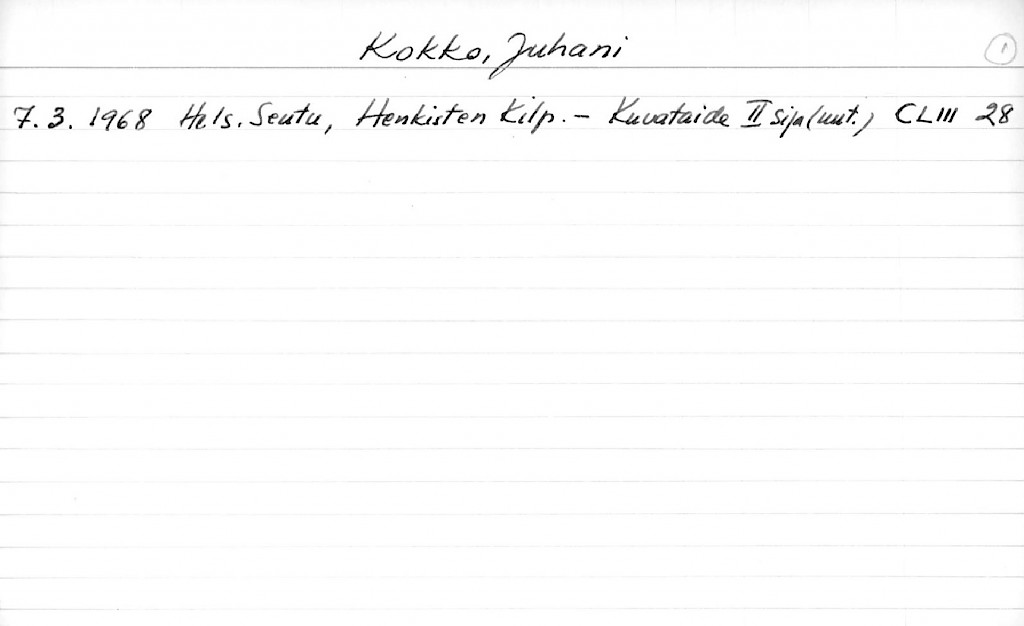 Kokko, Juhani 1
7.3. 1968 Hels. Seutu, Henkisten Kilp. - Kuvataide II sija (uut.) CLIII 28